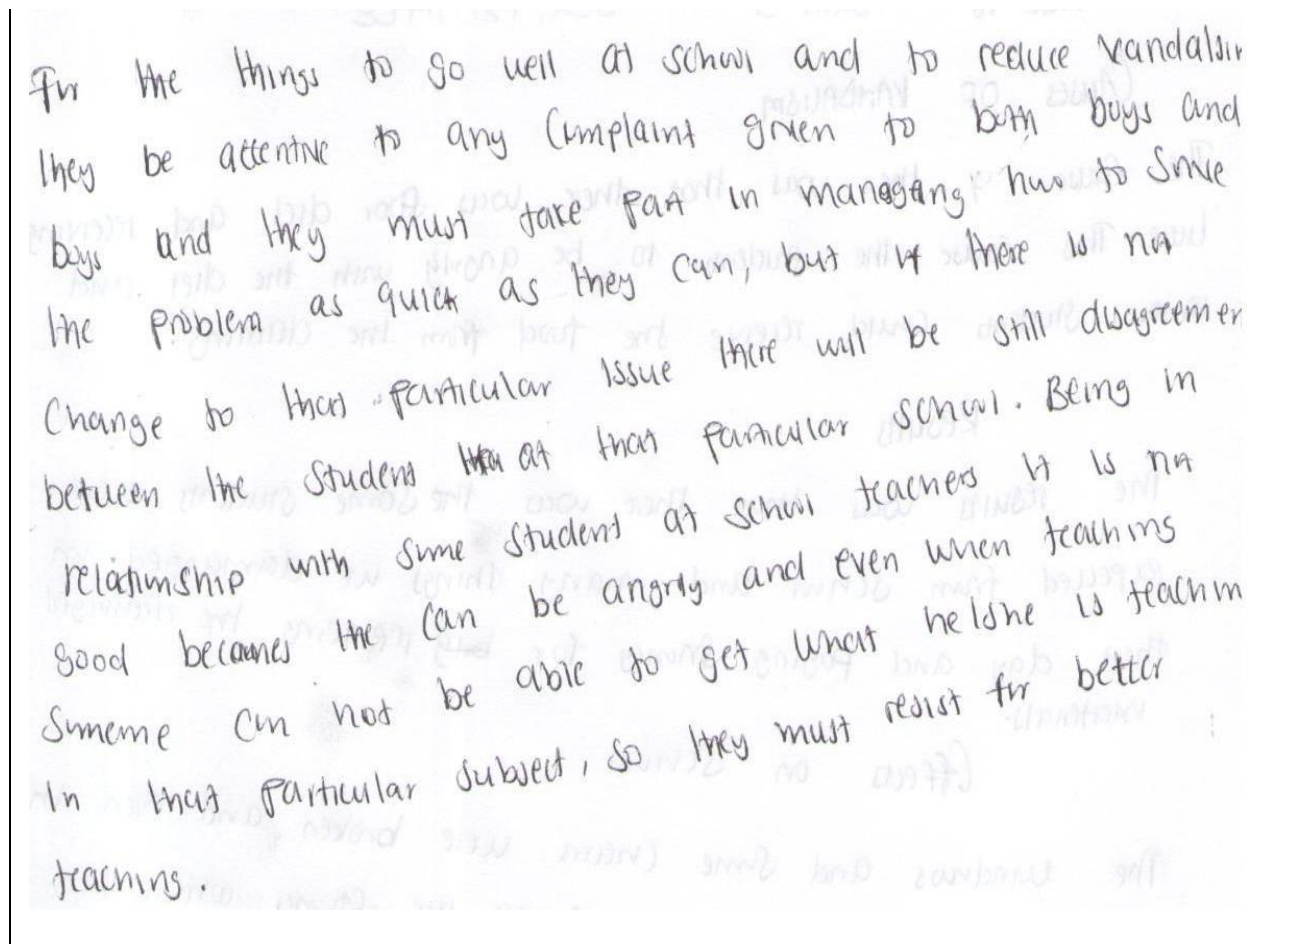 For the things to go well at school and to reduce vandalsim
they be attentive to any complaint given to both boys and
boys and they must take part in managang how to solve
the problem as quick as they can, but if there is not
Change to that particular issue there will be still disagreemen
between the student at that particular school. Being in
relationship with some student at school teachers it is not
good becaunes the can be angrly and even when teaching
Someone can not be able to get what he/she is teachin
In that particular subject, so they must resist for better
teaching.